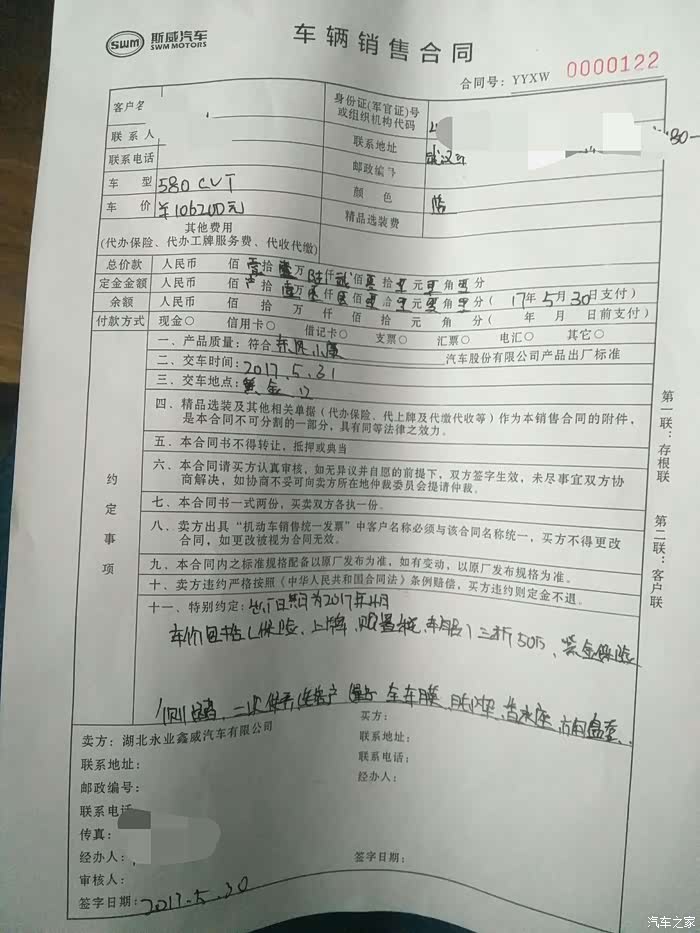 SWM 斯威汽车
SWM MOTORS
车辆销售合同
合同号: YYXW 0000122
客户名
身份证(军官证)号
或组织机构代码
联系人
联系地址
武汉
联系电话
邮政编号
车 型 580 CVT
颜 色
车 价 ¥106200元
精品选装费
其他费用
(代办保险、代办工牌服务费、代收代缴)
总价款 人民币 佰 壹 拾 万 仟 佰 拾 元 角 分
定金金额 人民币 佰 拾 万 仟 佰 拾 元 角 分 ( 17年 5月 30日支付)
余额 人民币 佰 拾 万 仟 佰 拾 元 角 分 ( 年 月 日前支付)
付款方式 现金○ 信用卡○ 借记卡○ 支票○ 汇票○ 电汇○ 其它○
约定事项
一、产品质量: 符合 东风小康 汽车股份有限公司产品出厂标准
二、交车时间: 2017.5.31
三、交车地点: 黄金口
四、精品选装及其他相关单据(代办保险、代上牌及代缴代收等)作为本销售合同的附件,
是本合同不可分割的一部分,具有同等法律之效力。
五、本合同书不得转让,抵押或典当
六、本合同请买方认真审核,如无异议并自愿的前提下,双方签字生效,未尽事宜双方协
商解决,如协商不妥可向卖方所在地仲裁委员会提请仲裁。
七、本合同书一式两份,买卖双方各执一份。
八、卖方出具“机动车销售统一发票”中客户名称必须与该合同名称统一,买方不得更改
合同,如更改被视为合同无效。
九、本合同内之标准规格配备以原厂发布为准,如有变动,以原厂发布规格为准。
十、卖方违约严格按照《中华人民共和国合同法》条例赔偿,买方违约则定金不退。
十一、特别约定: 日期为2017年4月
车价包括(保险、上牌、购置税、 )三折50万、紫金保险
全车膜、香水座、方向盘套、
第一联:存根联
第二联:客户联
卖方: 湖北永业鑫威汽车有限公司
联系地址:
邮政编号:
联系电话
传真:
经办人:
审核人:
签字日期: 2017.5.30
买方:
联系地址:
联系电话:
经办人:
签字日期:
汽车之家